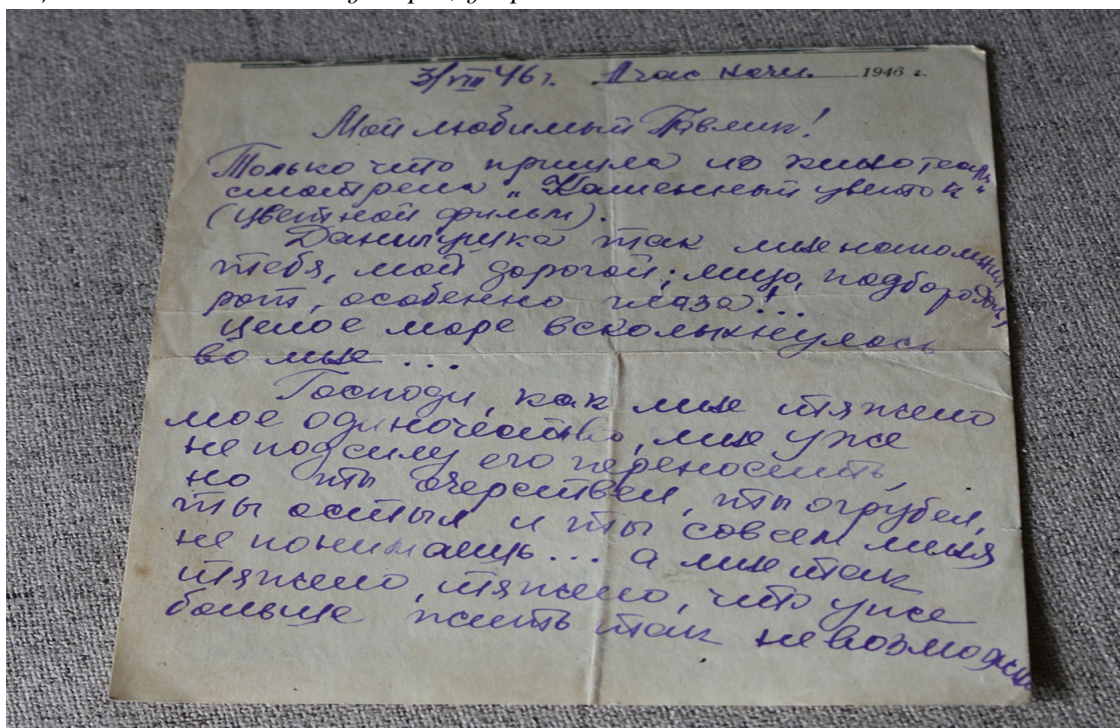 3/VIII 46 г. 1 час ночи. 1946 г.
Мой любимый Павлик!
Только что пришла из кинотеатр,
смотрела „Каменный цветок"
(цветной фильм).
Данилушка так мне напомнил
тебя, мой дорогой; лицо, подбородок,
рот, особенно глаза!...
Целое море всколыхнулось
во мне ...
Господи, как мне тяжело
мое одиночество, мне уже
не под силу его переносить,
но ты очерствел, ты огрубел,
ты остыл и ты совсем меня
не понимаешь... а мне так
тяжело, тяжело, что уже
больше жить так невозможно